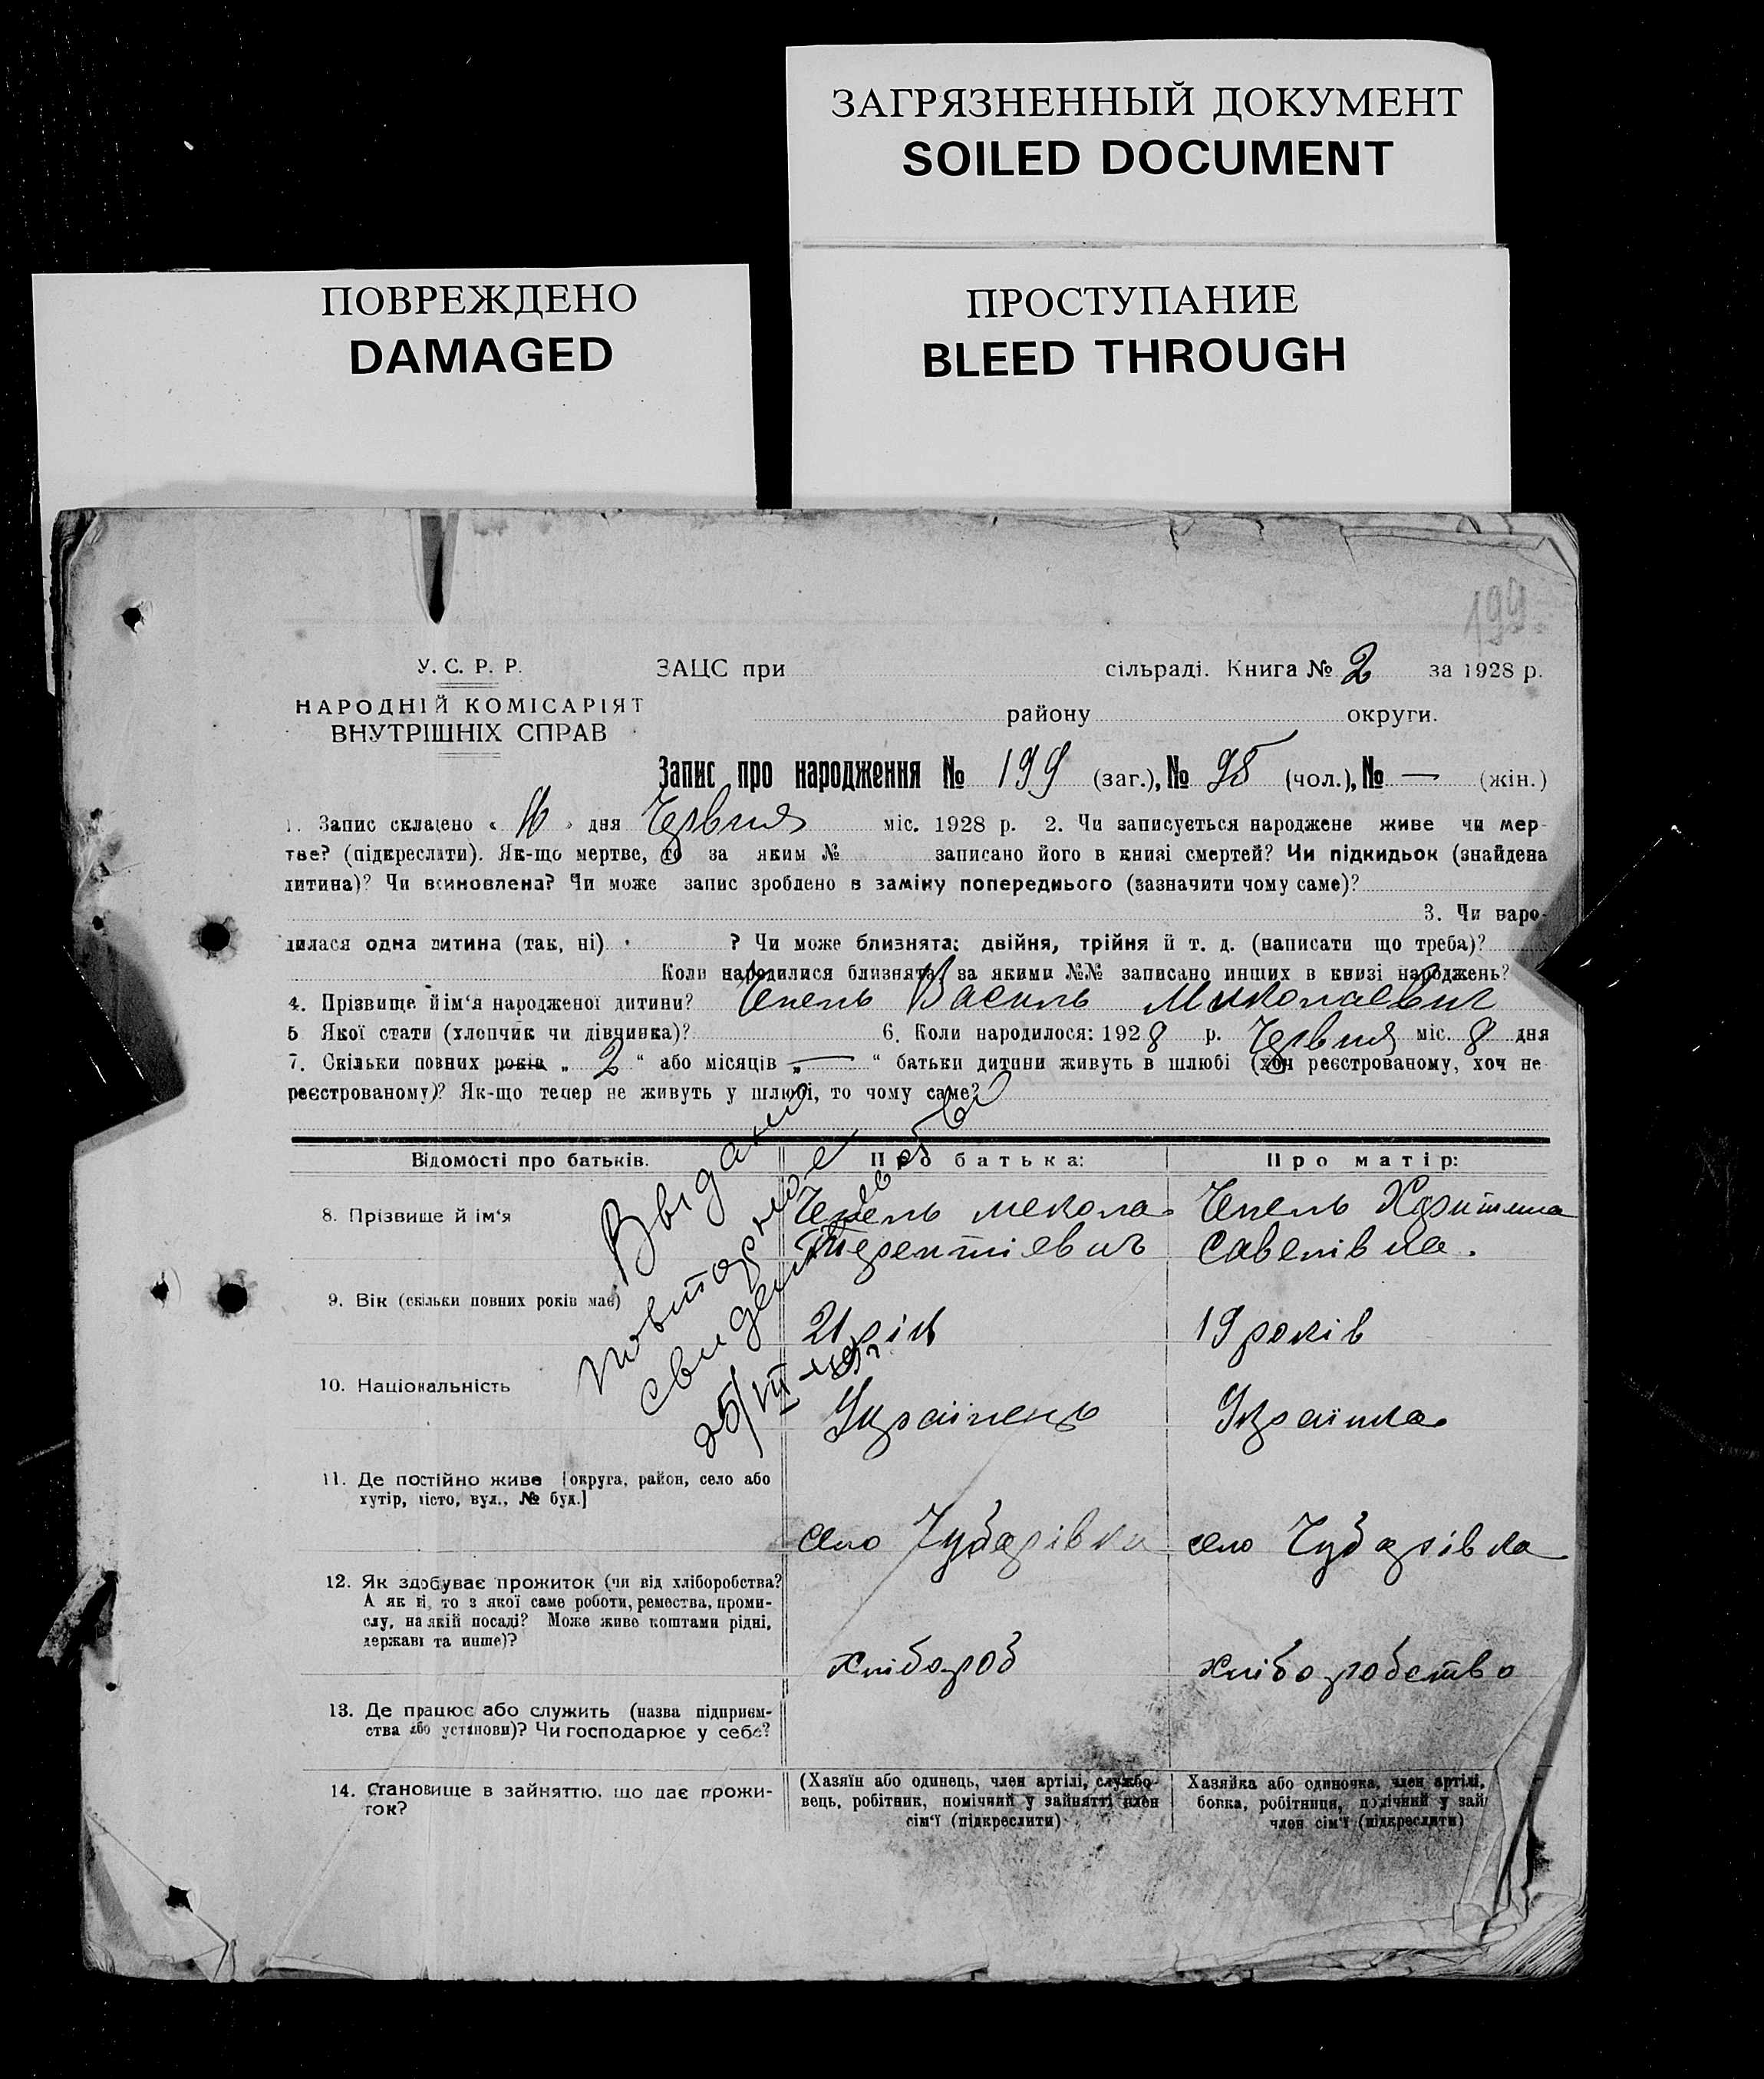 ЗАГРЯЗНЕННЫЙ ДОКУМЕНТ
SOILED DOCUMENT
ПОВРЕЖДЕНО
DAMAGED
ПРОСТУПАНИЕ
BLEED THROUGH
199
У. С. Р. Р.
НАРОДНІЙ КОМІСАРІЯТ
ВНУТРІШНІХ СПРАВ
ЗАЦС при сільраді. Книга № 2 за 1928 р.
району округи.
Запис про народження № 199 (заг.), № 95 (чол.), № — (жін.)
1. Запис складено « » дня Червня міс. 1928 р. 2. Чи записується народжене живе чи мер-
тве? (підкреслити). Як-що мертве, то за яким № записано його в книзі смертей? Чи підкидьок (знайдена
дитина)? Чи всиновлена? Чи може запис зроблено в заміну попереднього (зазначити чому саме)?
3. Чи наро-
дилася одна дитина (так, ні) ? Чи може близнята: двійня, трійня й т. д. (написати що треба)?
Коли народилися близнята, за якими №№ записано инших в книзі народжень?
4. Прізвище й ім'я народженої дитини? Чепель Василь Миколаевич
5 Якої стати (хлопчик чи дівчинка)? 6. Коли народилося: 1928 р. Червня міс. 8 дня
7. Скільки повних років „ 2 “ або місяців „ — “ батьки дитини живуть в шлюбі (хоч реєстрованому, хоч не
реєстрованому)? Як-що тепер не живуть у шлюбі, то чому саме?
Відомості про батьків. Про батька: Про матір:
8. Прізвище й ім'я
Чепель Микола Терентіевич
Чепель Харитина Савелівна.
9. Вік (скільки повних років має)
21 рік
19 років
10. Національність
Українець
Українка
повторное
свидетельство
25/VIII
11. Де постійно живе [округа, район, село або
хутір, місто, вул., № буд.]
село Чубарівка
село Чубарівка
12. Як здобуває прожиток (чи від хліборобства?
А як ні, то з якої саме роботи, ремества, проми-
слу, на якій посаді? Може живе коштами рідні,
держави та инше)?
хлібороб
хліборобство
13. Де працює або служить (назва підприєм-
ства або установи)? Чи господарює у себе?
14. Становище в зайняттю, що дає прожи-
ток?
(Хазяїн або одинець, член артілі, службо-
вець, робітник, помічний у зайнятті член
сім'ї (підкреслити)
Хазяйка або одиночка, член артілі,
бовка, робітниця, помічний у зай
член сім'ї (підкреслити)